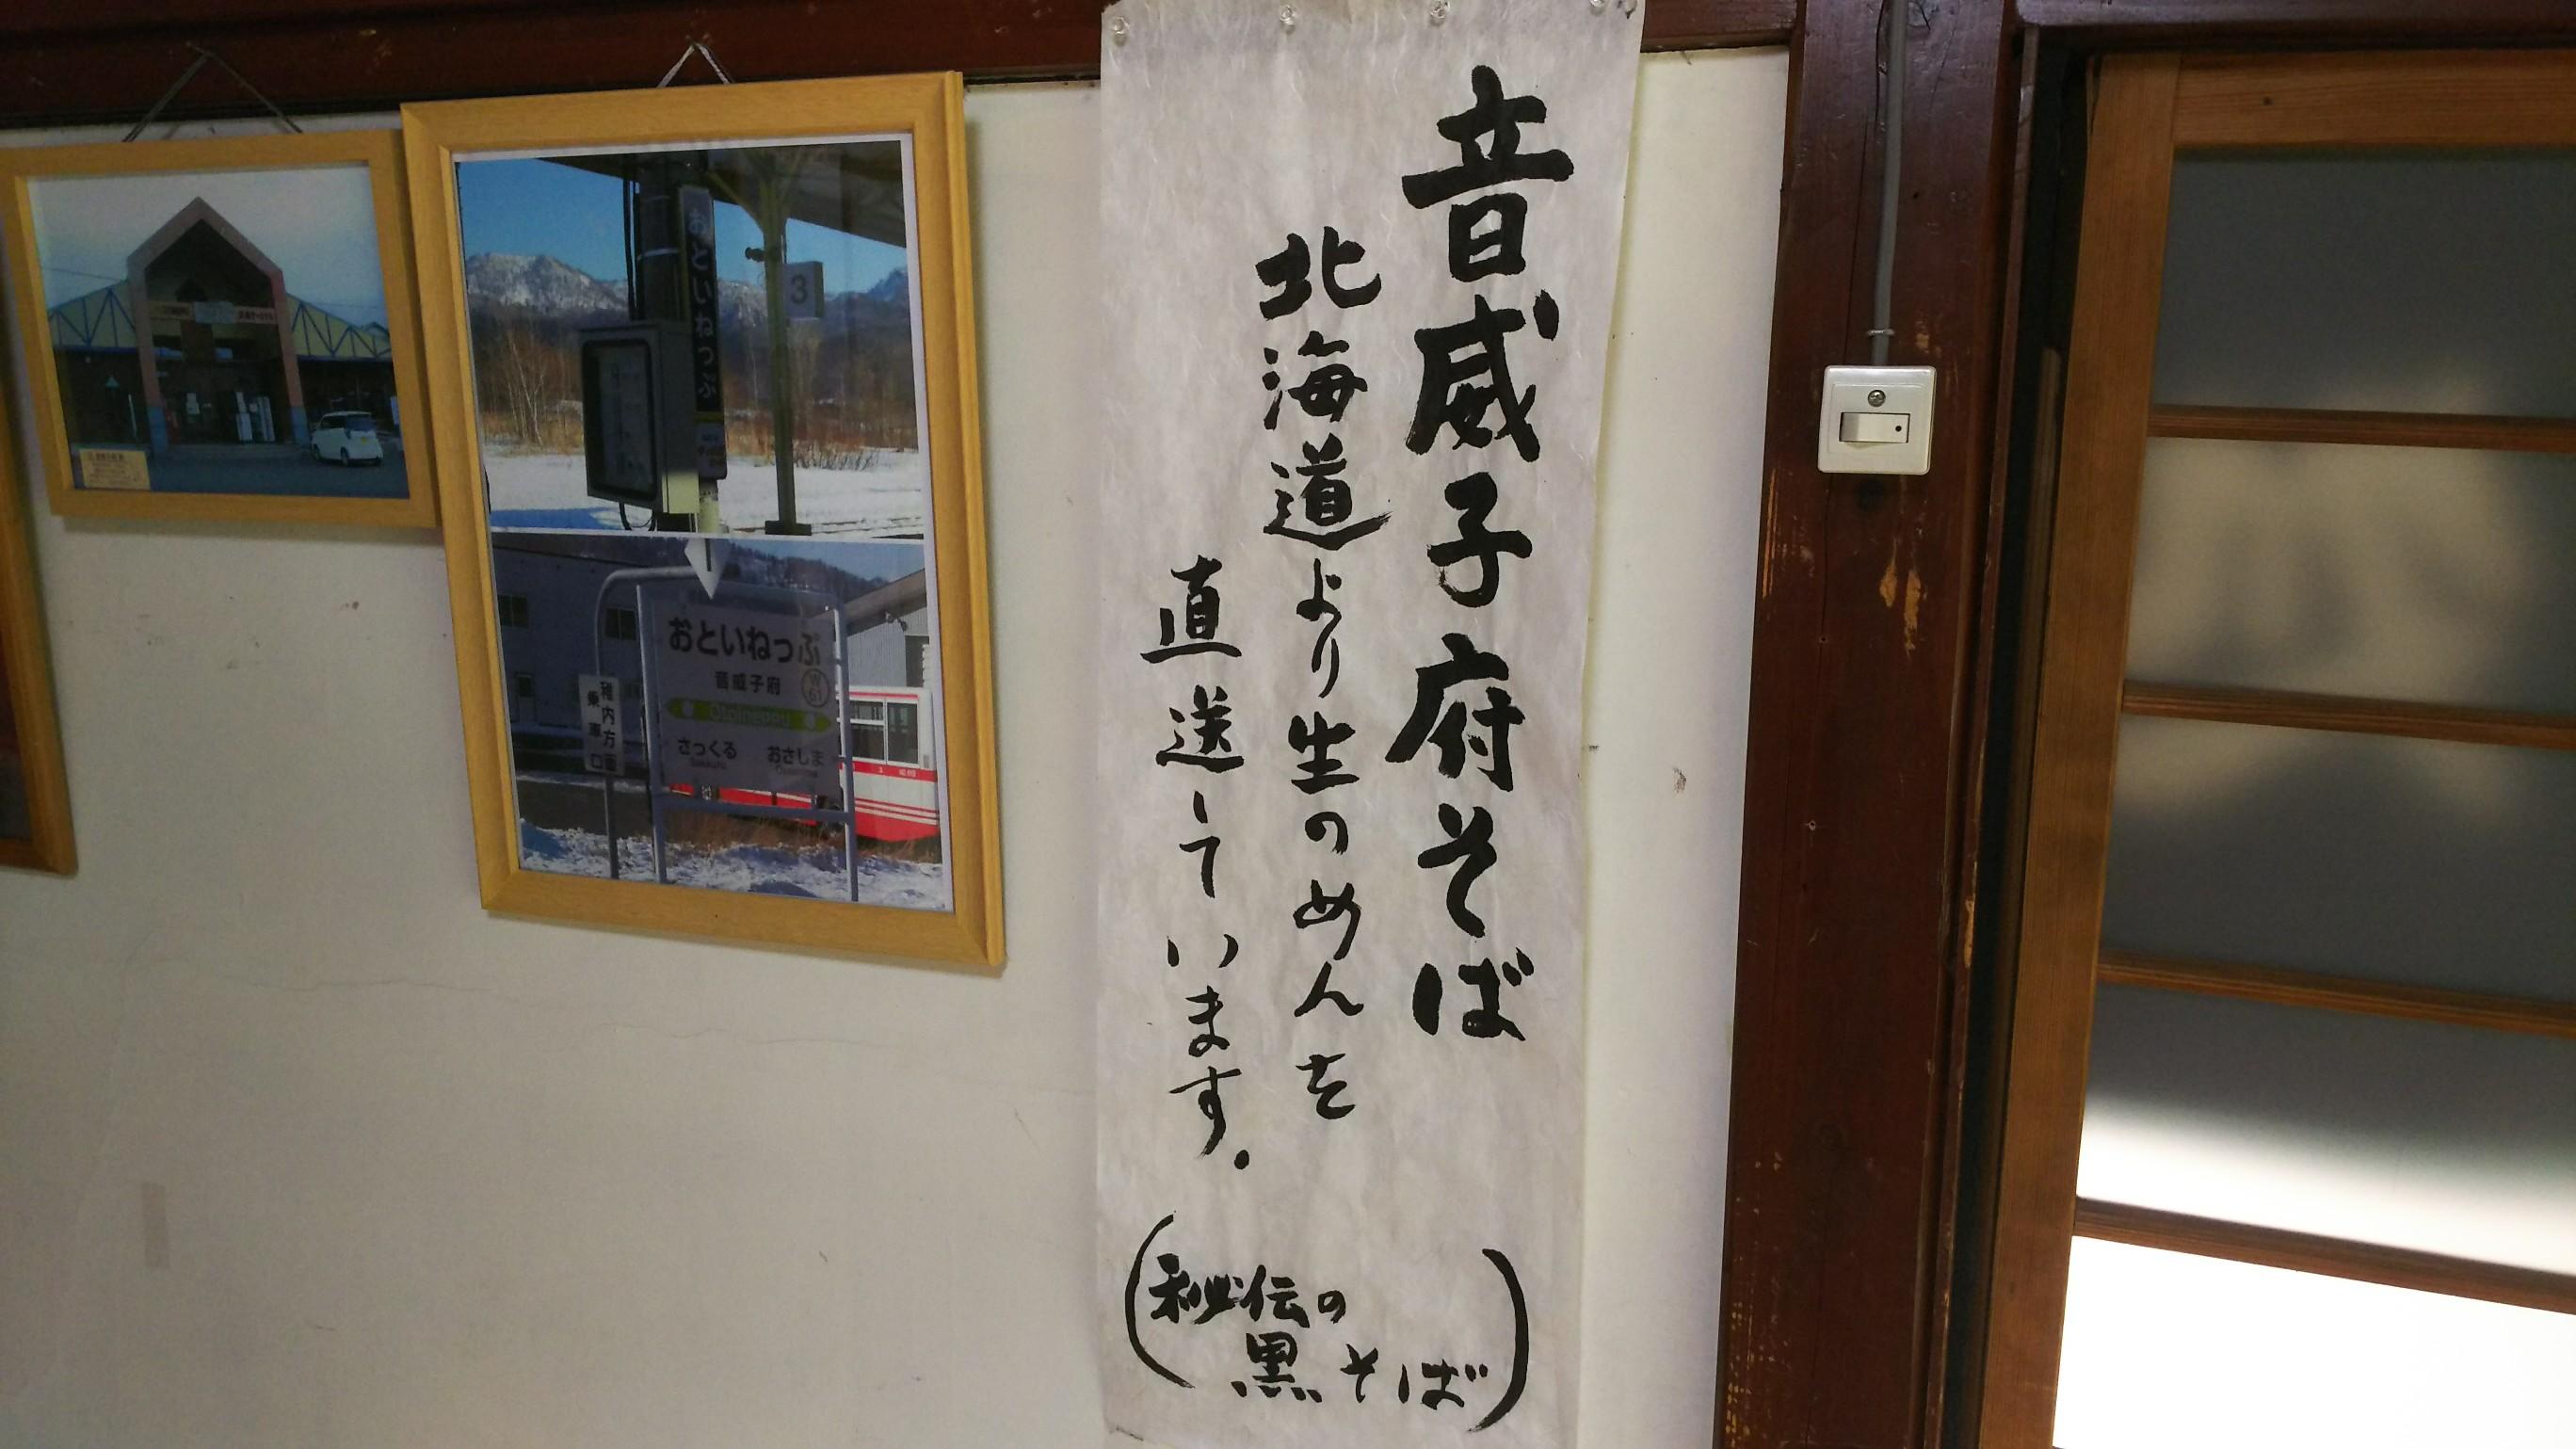 音威子府そば
北海道より生のめんを
直送しています.
(秘伝の
黒そば)
おといねっぷ
3
おといねっぷ
音威子府
W
61
Otoineppu
さっくる
Sakkuru
おさしま
Osashima
稚内方面
乗車口